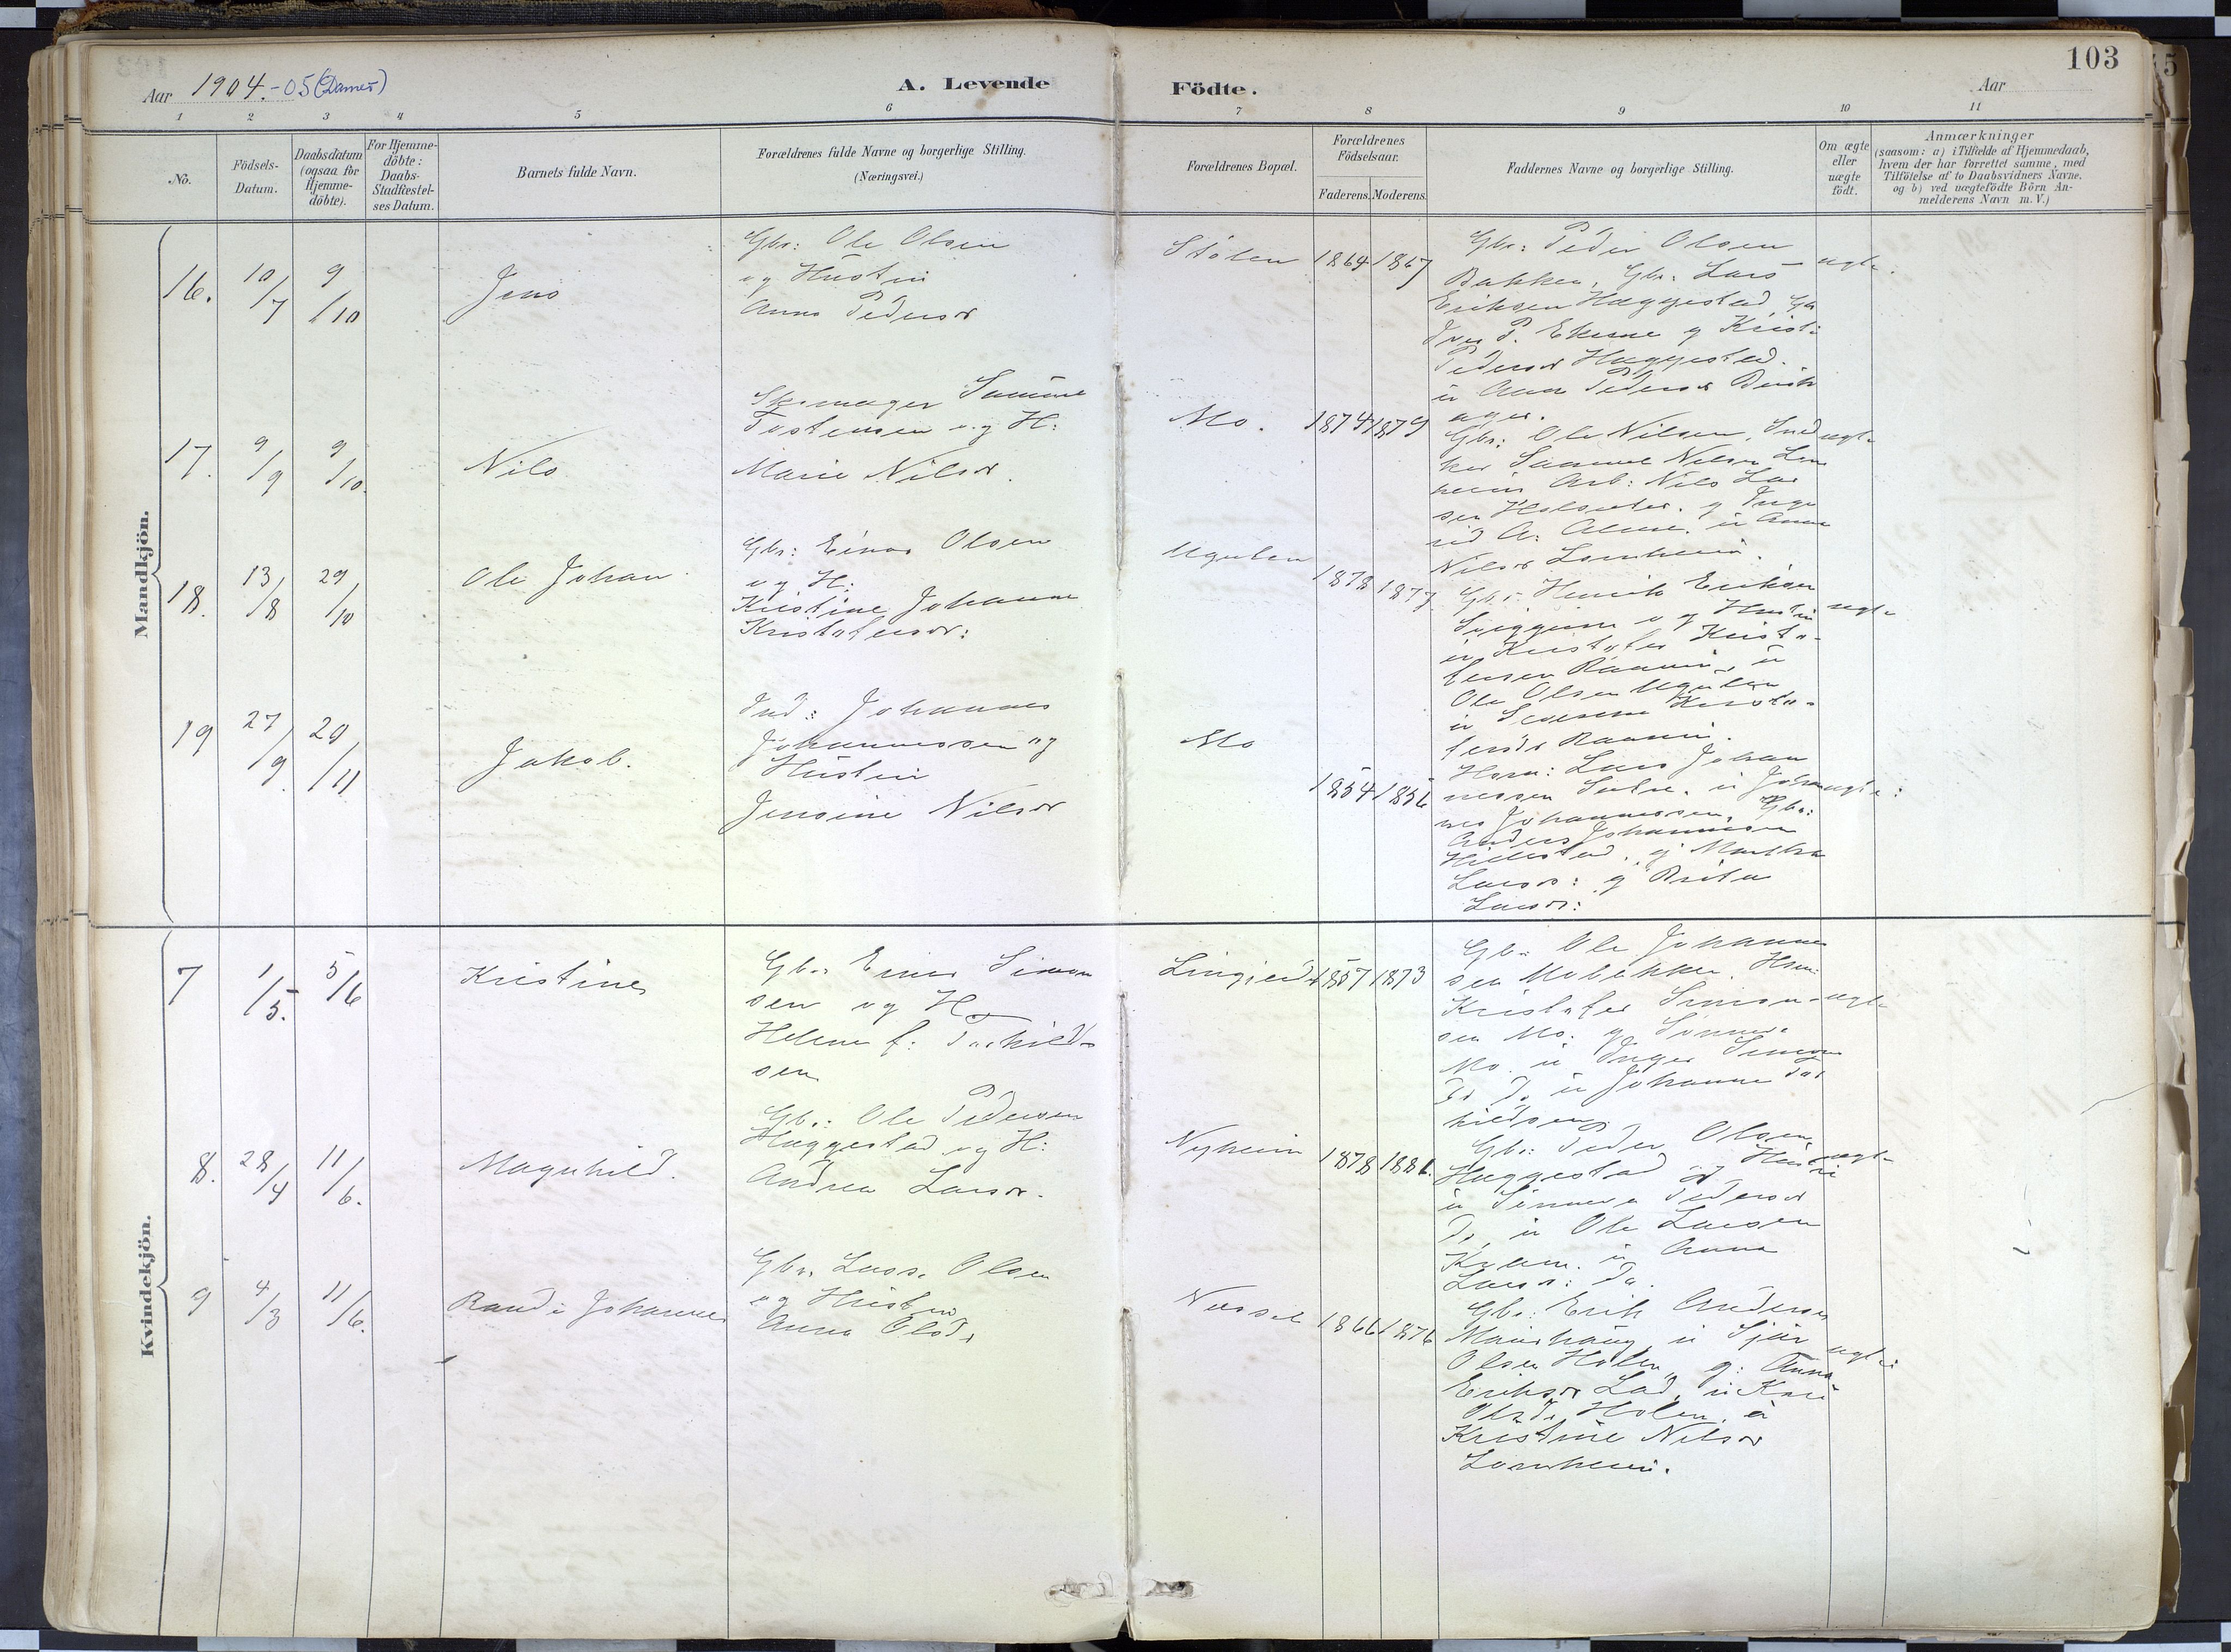 103
Aar 1904.-05 (Damer)
A. Levende Födte.
Aar
1 2 3 4 5 6 7 8 9 10 11
No.
Födsels-
Datum.
Daabsdatum
(ogsaa for
Hjemme-
döbte).
For Hjemme-
döbte:
Daabs-
Stadfæstel-
ses Datum.
Barnets fulde Navn.
Forældrenes fulde Navne og borgerlige Stilling.
(Næringsvei.)
Forældrenes Bopæl.
Forældrenes
Födselsaar.
Faderens. Moderens.
Faddernes Navne og borgerlige Stilling.
Om ægte
eller
uægte
födt.
Anmærkninger
(saasom: a) i Tilfælde af Hjemmedaab,
hvem der har forrettet samme, med
Tilföielse af to Daabsvidners Navne.
og b) ved uægtefödte Börn An-
melderens Navn m. V.)
Mandkjön.
16. 10/7 9/10
Jens
Gbr: Ole Olsen
og Hustru
Anna Pedersd
Stölen 1864 1867
Gbr: Peder Olsen
Bakken, Gbr. Lars
Eriksen Hæggestad, Gb
Iver P. Ekerne g Kristi
Pedersd Hæggestad.
ú Anna Pedersd Birk
ager.
ægte.
17. 9/9 9/10.
Nils
Skomager
Tostensen og H:
Marie Nilsd.
Mo. 1874 1879
Gbr: Ole Nilsen,
Samuel Nilsen Lem
heim Arb: Nils Lar
sen
rid A:
Nilsd Lemheim.
ægte
18. 13/8 29/10
Ole Johan
Gbr: Einar Olsen
og H:
Kristine Johanne
Kristofersdr:
Ugulen
1878 1877
Gbr: Henrik Eriksen
og Hustru
ú Kristofer Kristo-
fersen
Ole Olsen Ugulen
ú
ægte
19 27/9. 29/11
Jakob.
Ind: Johannes
Johannessen og
Hustru
Jensine Nilsd
Mo
1854 1856
Lars Johan
nessen Sætre. ú Johan
nes Johannessen, Gbr:
Anders Johannesen
Hillestad, g Martha
Larsd: g Brita
Larsd:
ægte:
Kvindekjön.
7 1/5. 5/6
Kristine
Gbr Einar Simon
sen og H
Helene f: Torkild-
sen
1857 1873
Gbr Ole Johanne
sen Mobakken.
Kristofer Simon-
sen Mo. g Sönneve
Mo. ú Inger Simons
Do ú Johanne Tor
kildsen
ægte
8. 28/4 11/6.
Magnhild.
Gbr: Ole Pedersen
Hæggestad og H:
Andrea Larsd.
Nyheim 1878 1881.
Gbr: Peder Olsen
Hæggestad og Hustru
ú Sönneve Pedersd
Do, ú Ole Larsen
Kvam. ú Anna
Larsd: Do.
ægte
9 4/3 11/6.
Randi Johanne
Gbr. Lars. Olsen
og Hustru
Anna Olsd.
1866 1876
Gbr. Erik Andersen
ú
Olsen Holen, g: Anna
Eriksd Lad, ú Kari
Olsd. Holen. ú
Kristine Nilsd
Lemheim.
ægte